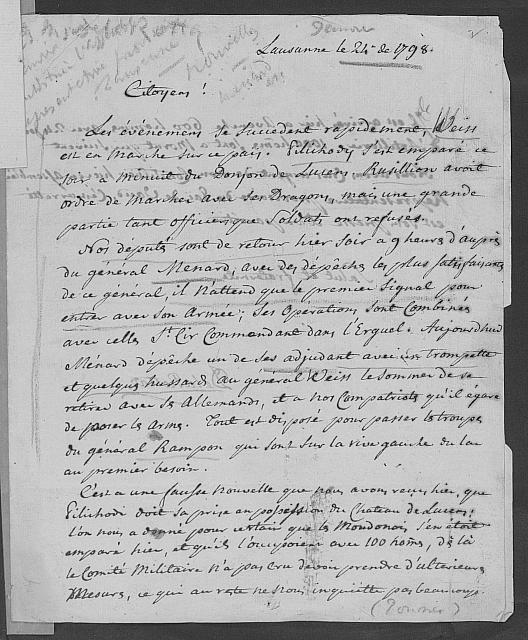 Lausanne le 24 de 1798.
Citoyens!
Les événemens se succedent rapidement, Weiss
est en marche sur ce païs. Pilichody s'est emparé ce
soir a minuit du Donjon de Lucens Ruillion avoit
ordre de Marcher avec ses Dragons, mais une grande
partie tant officiers que Soldats ont refusés.
Nos deputés sont de retour hier soir a 9 heures d'auprès
du général Menard, avec des dépêches les plus satisfaisantes
de ce général, il n'attend que le premier signal pour
entrer avec son Armée; ses Operations sont Combinées
avec celles St. Cir Commandant dans l'Erguel. Aujourdhui
Ménard dépêche un de ses adjudant avec un trompette
et quelques hussards au général Weiss le Sommer de se
retirer avec ses Allemands, et a nos Compatriots qu'il égare
de poser les Arms. Tout est disposé pour passer les troupes
du général Rampon qui sont sur la rive gauche du lac
au premier besoin.
C'est a une fausse nouvelle que nous avons reçu hier, que
Pilichodi doit sa prise en possession du Chateau de Lucens;
l'on nous a donné pour certain que les Moudonois s'en étoit
emparé hier, et qu'ils l'occupoient avec 100 homs, de là
le Comité Militaire n'a pas cru devoir prendre d'ulterieures
Mesures, ce qui au reste ne nous inquiette pas beaucoup.
(Tournez)